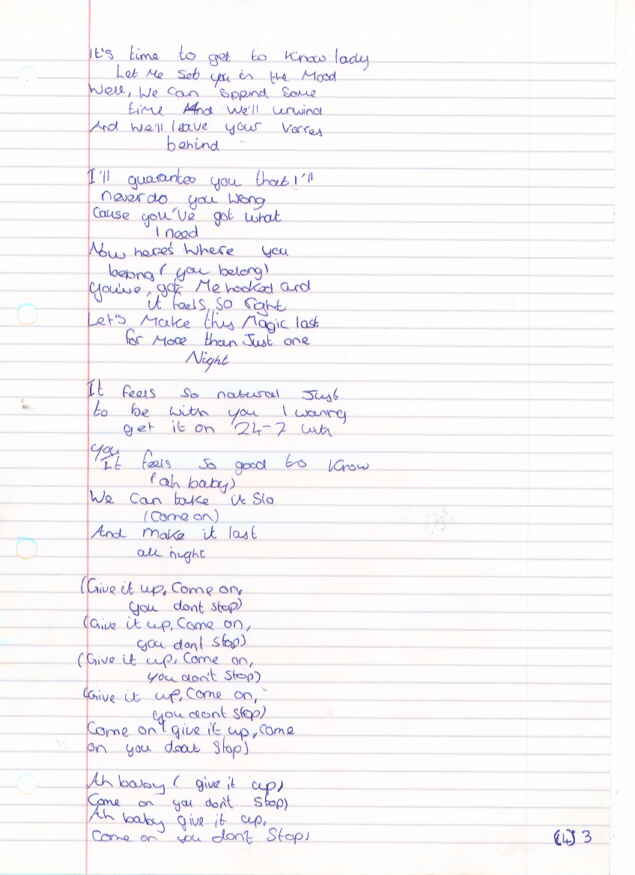 It's time to get to know lady
Let Me set you in the Mood
Well, We Can spend Some
time And We'll unwind
And we'll leave your Worres
behind
I'll guarantee you that I'll
never do you Wrong
Cause you've got what
I need
Now here's Where you
belong (you belong)
You've got Me hooked and
it feels so right
Let's Make this Magic last
for More than Just one
Night
It feels so natural Just
to be with you I wanna
get it on 24-7 with
you
It feels so good to know
(ah baby)
We Can take it Slo
(Come on)
And make it last
all night
(Give it up, Come on,
you dont stop)
(Give it up, Come on,
you dont stop)
(Give it up, Come on,
you don't Stop)
(Give it up, Come on,
you dont stop)
Come on (give it up, come
on you dont Stop)
Ah baby (give it up,
Come on you don't Stop)
Ah baby give it up,
Come on you dont Stop,
(4) 3